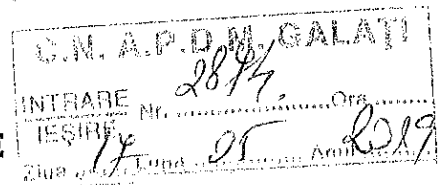 C.N. A.P.D.M. GALAŢI
INTRARE Nr. 2874 Ora
IEŞIRE
Ziua 17 Luna 05 Anul 2019